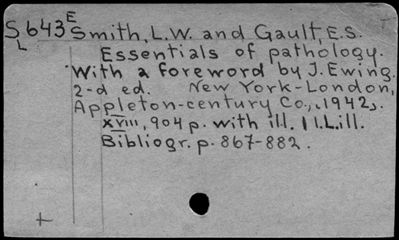 S643 E Smith, L.W. and Gault, E.S.
L Essentials of pathology.
With a foreword by J. Ewing.
2-d ed. New York-London,
Appleton-century Co., 1942.
XVIII, 904 p. with ill. 1 l. ill.
Bibliogr. p. 867-882.
+